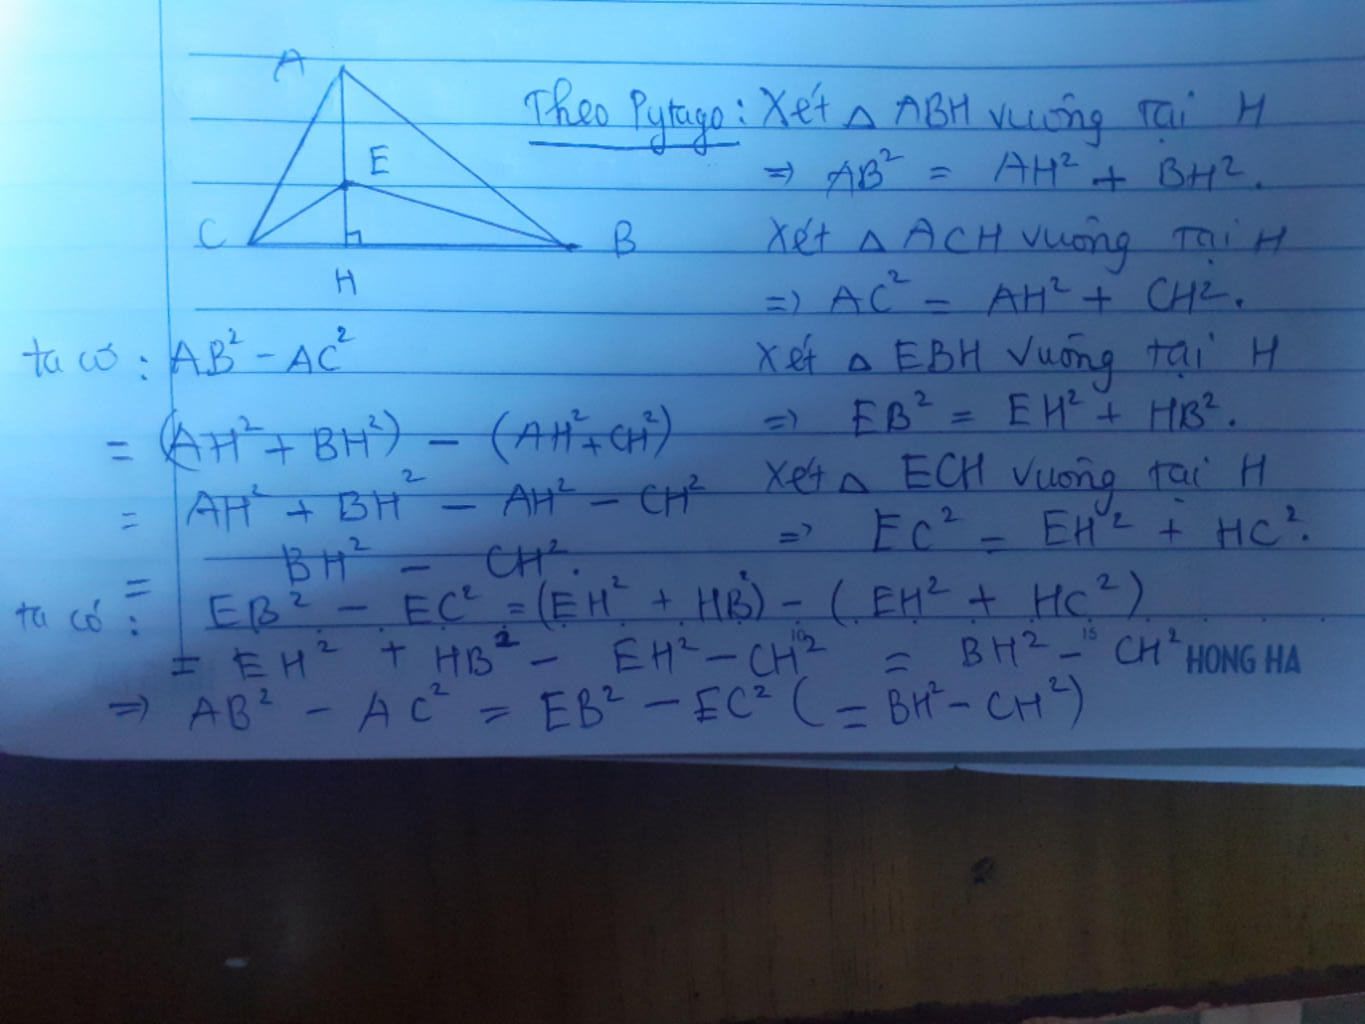 A
E
C
B
H
Theo Pytago: Xét △ ABH vuông tại H
=> AB² = AH² + BH².
Xét △ ACH vuông tại H
=> AC² = AH² + CH².
Xét △ EBH vuông tại H
=> EB² = EH² + HB².
Xét △ ECH vuông tại H
=> EC² = EH² + HC².
ta có: AB² - AC²
= (AH² + BH²) - (AH² + CH²)
= AH² + BH² - AH² - CH²
= BH² - CH².
ta có: EB² - EC² = (EH² + HB²) - (EH² + HC²)
= EH² + HB² - EH² - CH² = BH² - CH²
10 15 HONG HA
=> AB² - AC² = EB² - EC² (= BH² - CH²)